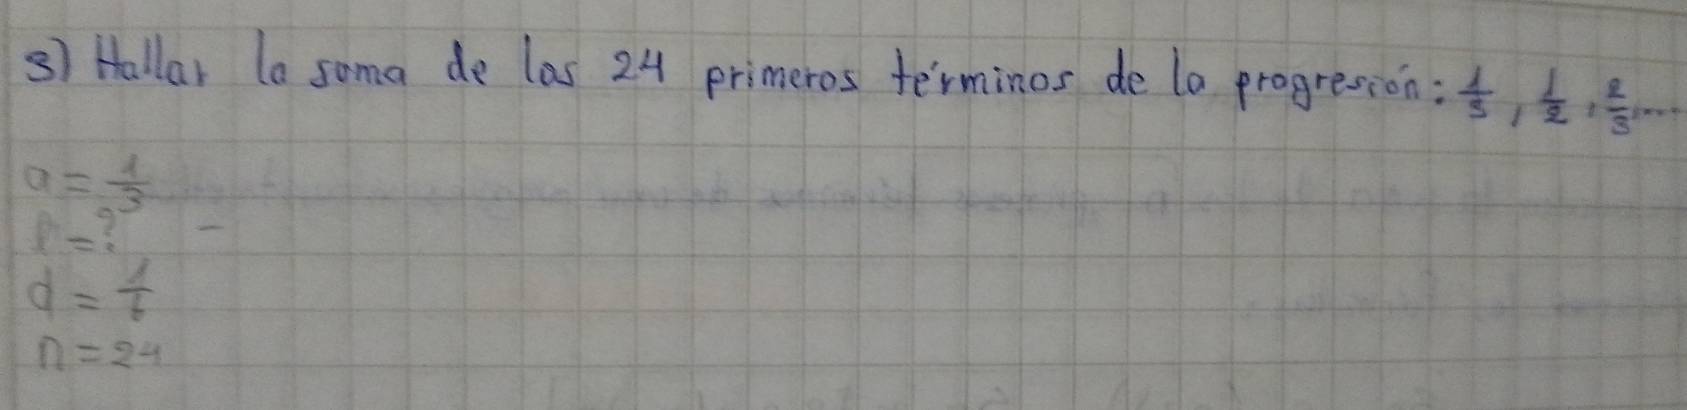 3) Hallar la suma de las 24 primeros términos de la progresión: 1/3, 1/2, 2/3,....
a = 1/3
l = ? -
d = 1/6
n = 24